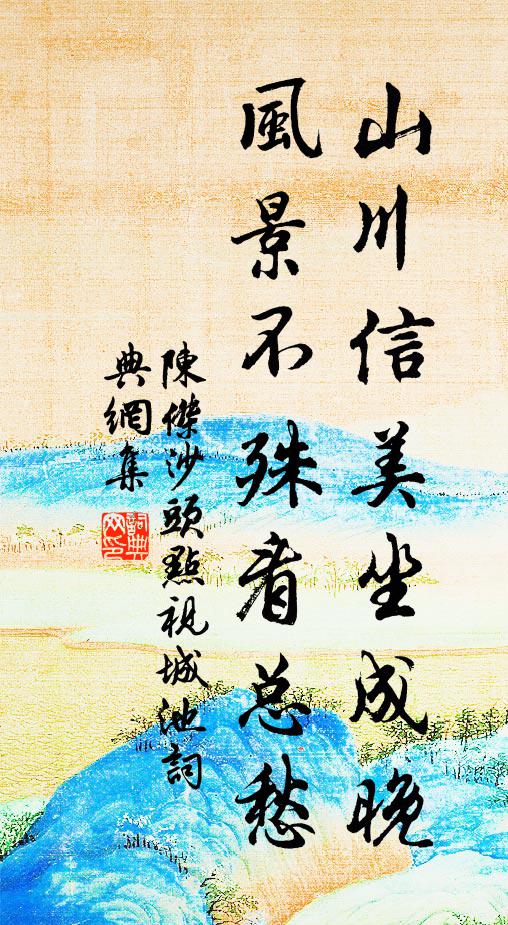 山川信美坐成晚
風景不殊看总愁
陳傑沙頭點視城池詞
典網集
詞典
网印